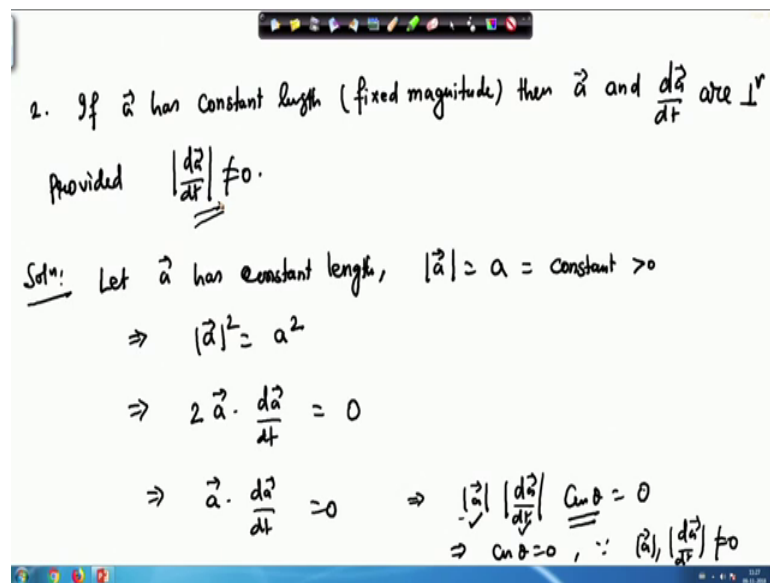 2. If a⃗ has constant length (fixed magnitude) then a⃗ and da⃗/dt are ⊥r
Provided |da⃗/dt| ≠ 0.
Solⁿ: Let a⃗ has constant length, |a⃗| = a = constant >0
⇒ |a⃗|² = a²
⇒ 2 a⃗ · da⃗/dt = 0
⇒ a⃗ · da⃗/dt = 0 ⇒ |a⃗| |da⃗/dt| Cos θ = 0
⇒ cos θ = 0, ∵ |a⃗|, |da⃗/dt| ≠ 0
11:27